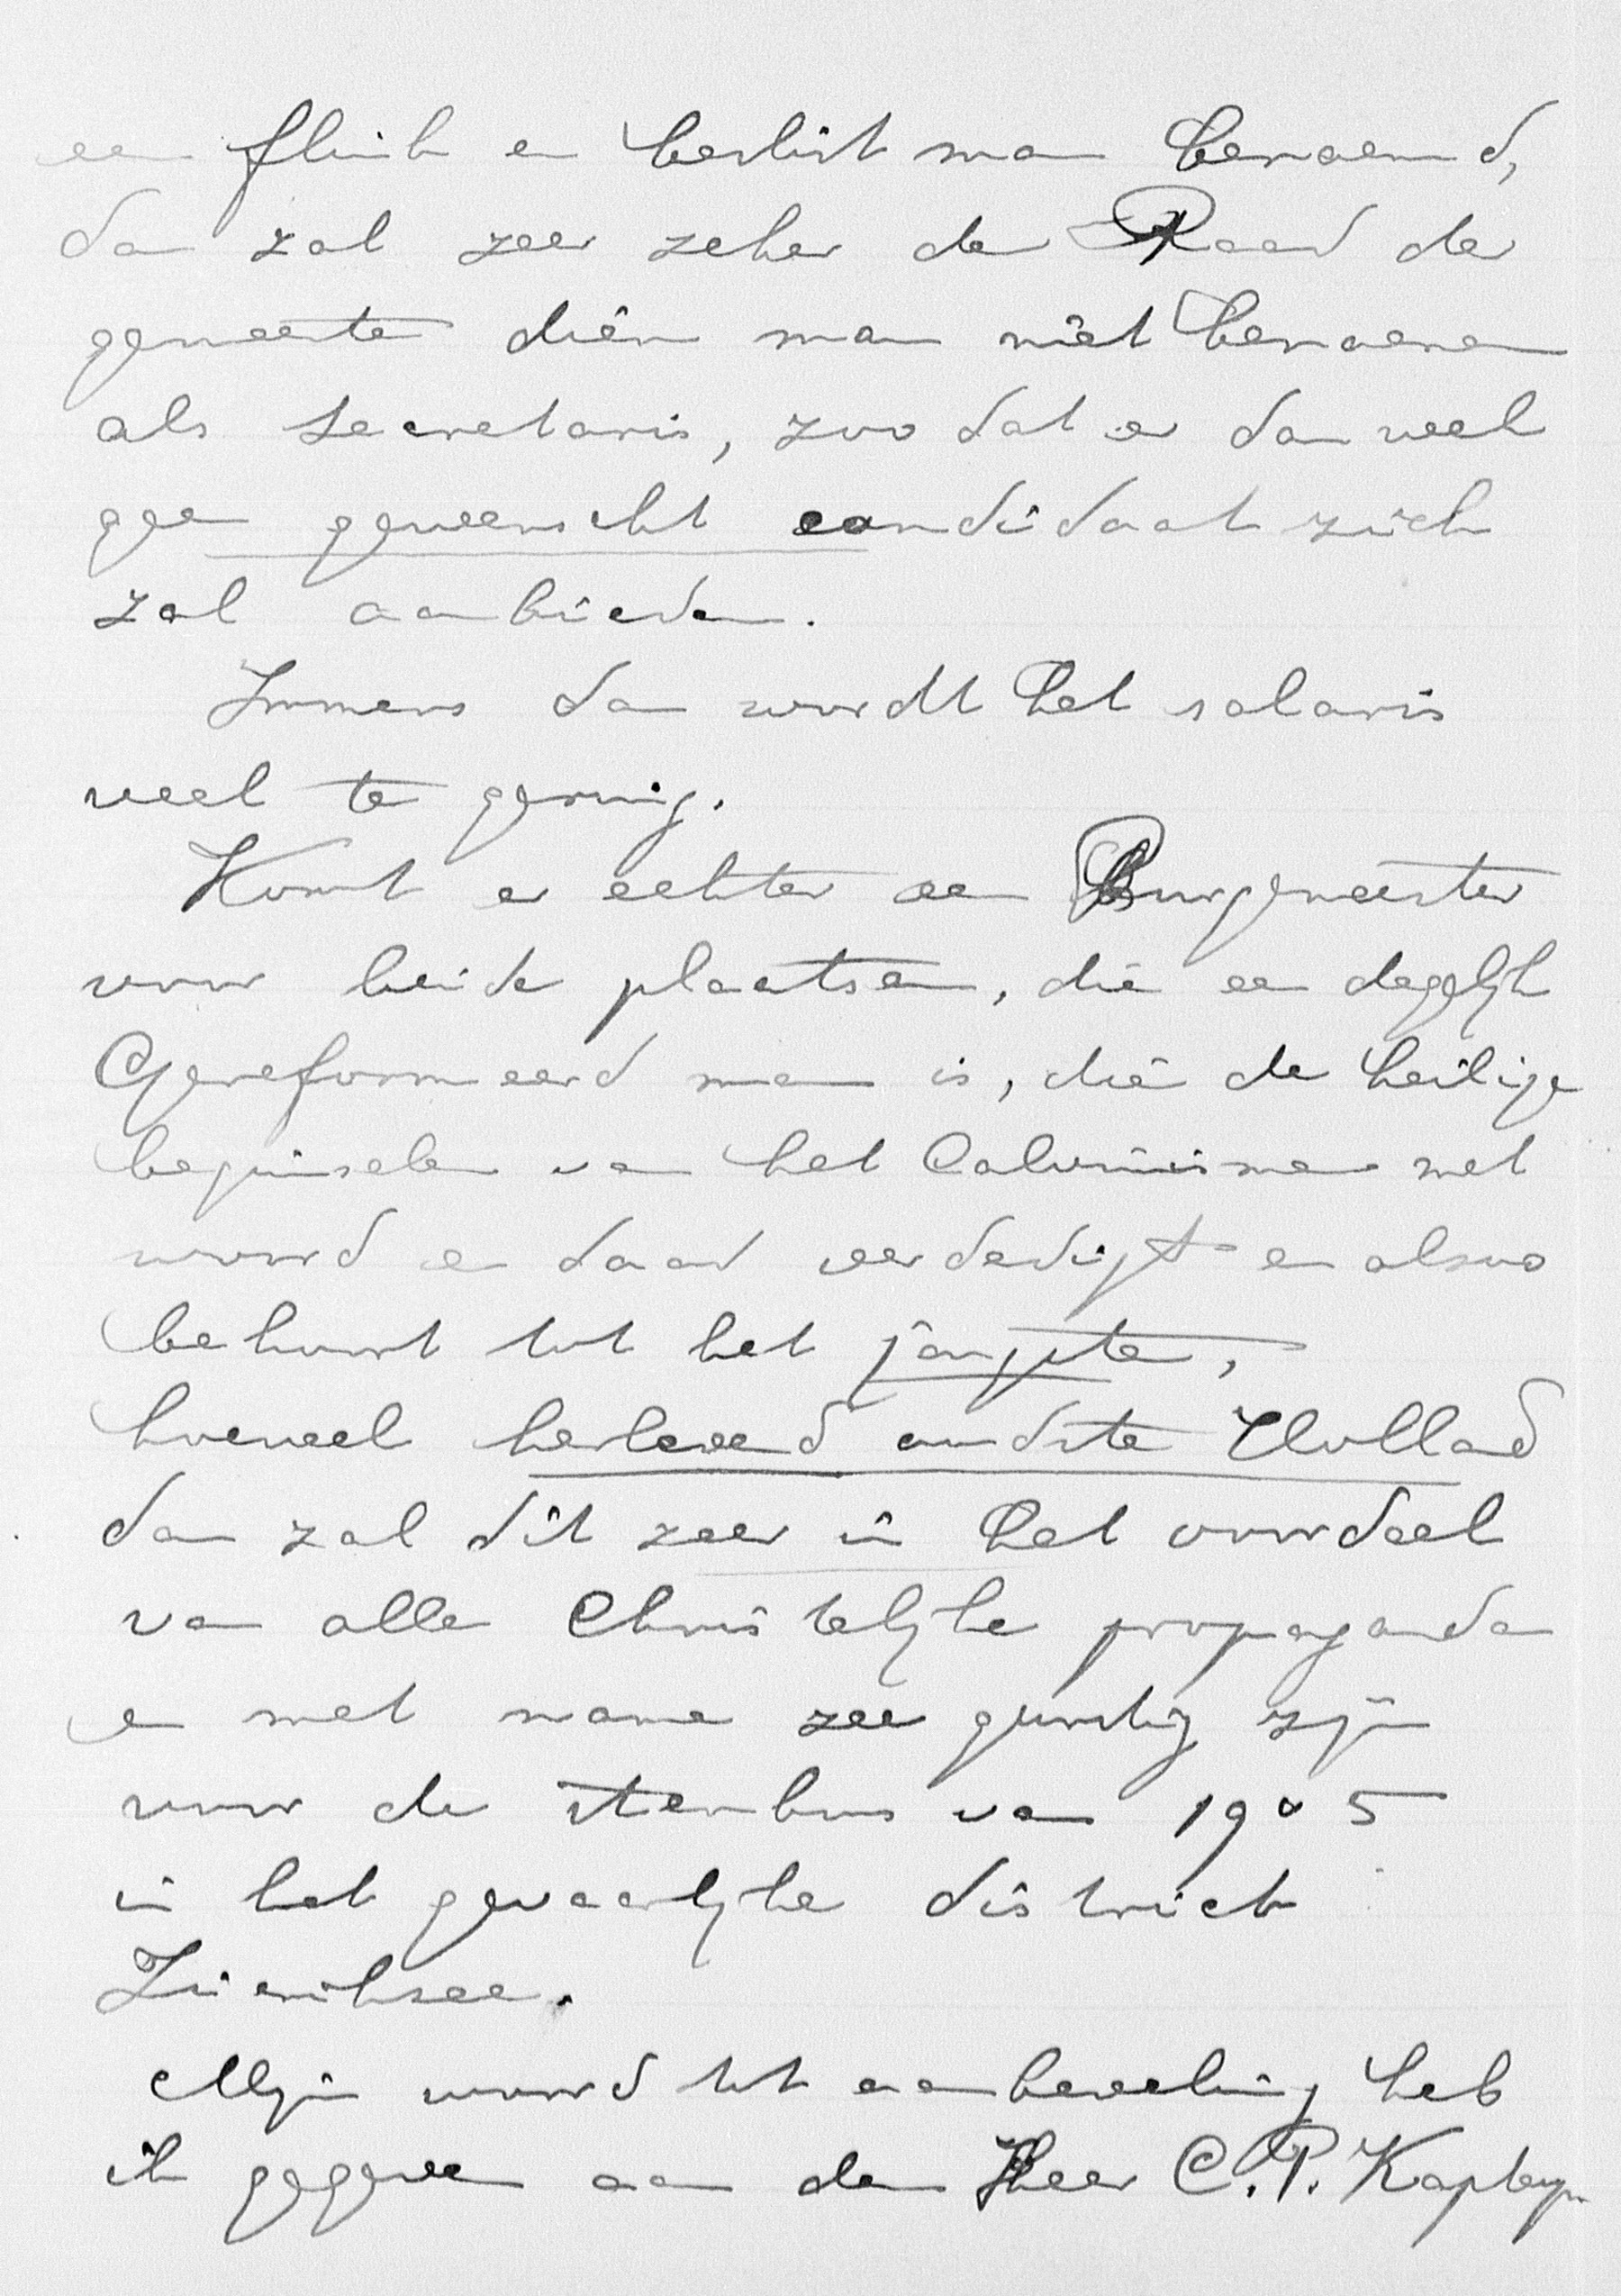 een flink en beslist man benoemd,
dan zal zeer zeker de Raad der
gemeente dien man niet benoemen
als secretaris, zoo dat er dan wel
geen gewenscht candidaat zich
zal aanbieden.
Immers dan wordt het salaris
veel te gering.
Komt er echter een Burgemeester
voor beide plaatsen, die een degelijk
Gereformeerd man is, die de heilige
beginselen van het Calvinisme met
woord en daad verdedigt en alzoo
behoort tot het jongste,
hoewel herlevend oudste Holland
dan zal dit zeer in het voordeel
van alle Christelijke propaganda
en met name zeer gunstig zijn
voor de stembus van 1905
in het gevaarlijke district
Zierikzee.
Mijn woord tot aanbeveling heb
ik gegeven aan den Heer C. P. Kapteyn